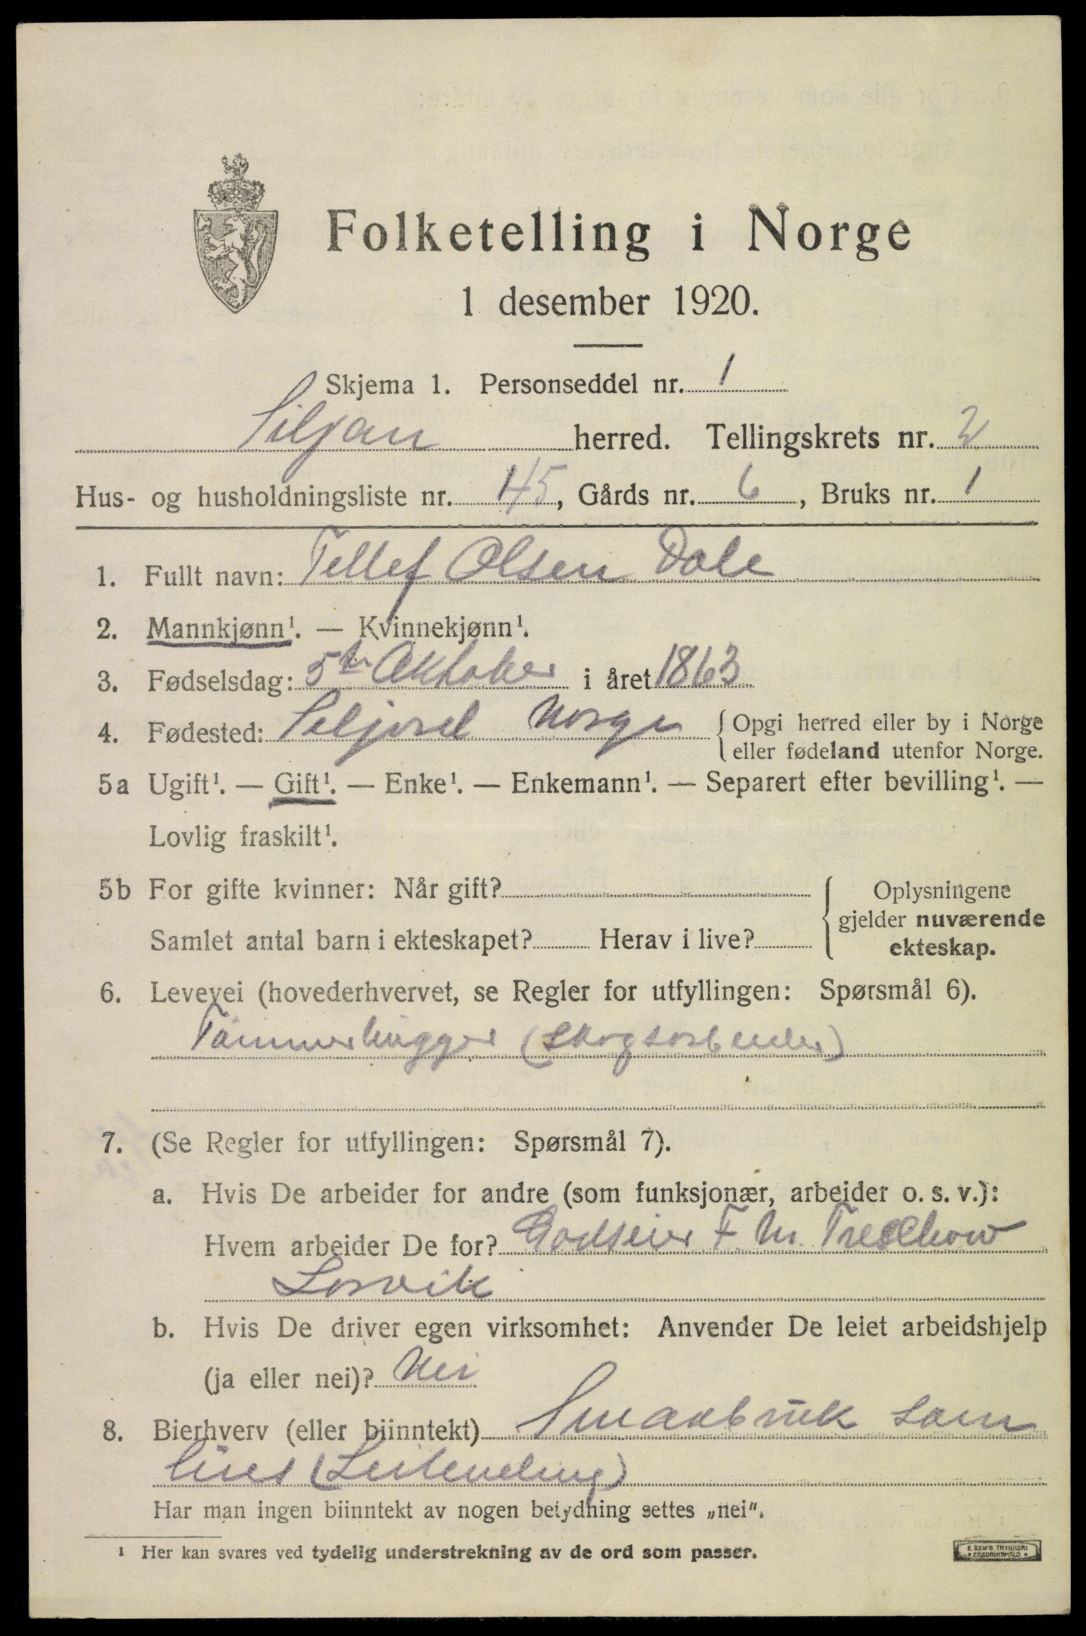 Folketelling i Norge
1 desember 1920.
Skjema 1. Personseddel nr. 1
Siljan herred. Tellingskrets nr. 2
Hus- og husholdningsliste nr. 145, Gårds nr. 6, Bruks nr. 1
1. Fullt navn: Tellef Olsen Dale
2. Mannkjønn¹. — Kvinnekjønn¹.
3. Fødselsdag: 5te Oktober i året 1863
4. Fødested: Seljord Norge {Opgi herred eller by i Norge
eller fødeland utenfor Norge.
5a Ugift¹. — Gift¹. — Enke¹. — Enkemann¹. — Separert efter bevilling¹. —
Lovlig fraskilt¹.
5b For gifte kvinner: Når gift?
Samlet antal barn i ekteskapet? Herav i live?
{Oplysningene
gjelder nuværende
ekteskap.
6. Levevei (hovederhvervet, se Regler for utfyllingen: Spørsmål 6).
Tømmerhugger (Skogsarbeider)
7. (Se Regler for utfyllingen: Spørsmål 7).
a. Hvis De arbeider for andre (som funksjonær, arbeider o. s. v.):
Hvem arbeider De for? Godseier F. M. Treschow
Larvik
b. Hvis De driver egen virksomhet: Anvender De leiet arbeidshjelp
(ja eller nei)? Nei
8. Bierhverv (eller biinntekt) Smaabruk som
(Leilending)
Har man ingen biinntekt av nogen betydning settes „nei".
¹ Her kan svares ved tydelig understrekning av de ord som passer.
E. SEM'S TRYKKERI
FREDRIKSHALD